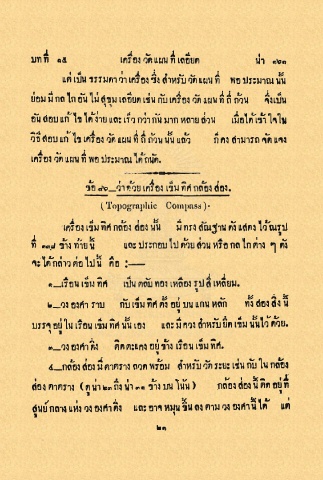 บทที่ ๑๕ เครื่องวัดแผนที่เลอียด น่า ๑๖๓
แต่เปนธรรมดาว่าเครื่องซึ่งสำหรับวัดแผนที่ พอประมาณนั้น
ย่อมมีกลไกอันไม่สุขุมเลอียดเช่นกับเครื่องวัดแผนที่ถี่ถ้วน จึ่งเปน
อันสอบแก้ไขได้ง่ายและเร็วกว่ากันมากหลายส่วน เมื่อได้เข้าใจใน
วิธีสอบแก้ไขเครื่องวัดแผนที่ถี่ถ้วนนั้นแล้ว ก็คงสามารถจัดแจง
เครื่องวัดแผนที่พอประมาณได้ถนัด.
ข้อ ๙๐_ว่าด้วยเครื่องเข็มทิศกล้องส่อง.
(Topographic Compass).
เครื่องเข็มทิศกล้องส่องนั้น มีทรงสัณฐานดังแสดงไว้ณรูป
ที่ ๑๓๗ ข้างท้ายนี้ และประกอบไปด้วยส่วนหรือกลไกต่าง ๆ ดัง
จะได้กล่าวต่อไปนี้ คือ :—
๑_เรือนเข็มทิศ เปนตลับทองเหลืองรูปสี่เหลี่ยม.
๒_วงองศาราบ กับเข็มทิศตั้งอยู่บนแกนหลัก ทั้งสองสิ่งนี้
บรรจุอยู่ในเรือนเข็มทิศนั้นเอง และมีควงสำหรับยึดเข็มนั้นไว้ด้วย.
๓_วงองศาดิ่ง ติดตะแคงอยู่ข้างเรือนเข็มทิศ.
๔_กล้องส่องมีตาตรางลวดพร้อม สำหรับวัดระยะเช่นกับในกล้อง
ส่องตาตราง (ดูน่า ๒๓ ถึงน่า ๓๑ ข้างบนโน้น) กล้องส่องนี้ติดอยู่ที่
สูนย์กลางแห่งวงองศาดิ่ง และอาจหมุนขึ้นลงตามวงองศานี้ได้ แต่
๒๑